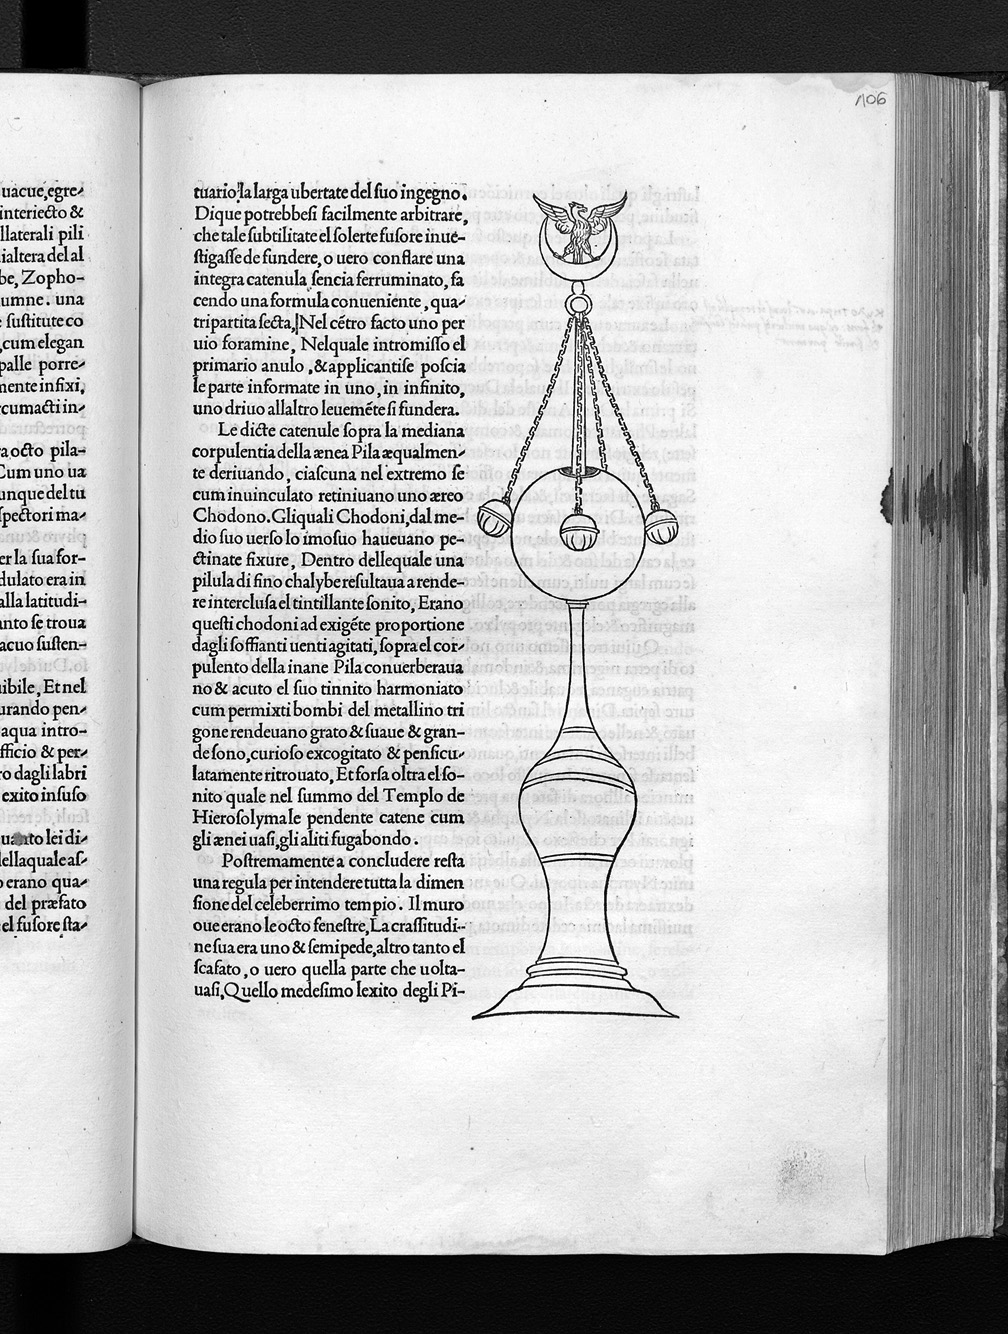 uacue,egre-
interiecto &
llaterali pili
ialtera del al
be, Zopho-
umne. una
e ſuſtitute co
,cum elegan
palle porre-
mente infixi,
rcumacti in-
ra,octo pila-
Cum uno ua
unque del tu
ſpectori ma-
er la ſua for-
dulato era in
alla latitudi-
anto ſe troua
acuo ſuſten-
ibile, Et nel
urando pen-
aqua intro-
fficio & per-
ro dagli labri
exito inſuſo
to lei di-
ellaquale aſ-
o erano qua-
del præfato
el fuſore ſta-
106
tuario la larga ubertate del ſuo ingegno.
Dique potrebbeſi facilmente arbitrare,
che tale ſubtilitate el ſolerte fuſore inue-
ſtigaſſe de fundere, o uero conflare una
integra catenula, ſencia ferruminato, fa
cendo una formula conueniente, qua-
tripartita ſecta, Nel cẽtro facto uno per
uio foramine, Nelquale intromiſſo el
primario anulo, & applicantiſe poſcia
le parte informate in uno, in infinito,
uno driuo allaltro leuemẽte ſi fundera.
Le dicte catenule ſopra la mediana
corpulentia della ænea Pila æqualmen-
te deriuando, ciaſcuna nel extremo ſe
cum inuinculato retiniuano uno æreo
Chodono. Gliquali Chodoni, dal me-
dio ſuo uerſo lo imo ſuo haueuano pe-
ctinate fixure, Dentro dellequale una
pilula di fino chalybe reſultaua a rende-
re intercluſa el tintillante ſonito, Erano
queſti chodoni ad exigẽte proportione
dagli ſoffianti uenti agitati, ſopra el cor-
pulento della inane Pila conuerberaua
no & acuto el ſuo tinnito harmoniato
cum permixti bombi del metallino tri
gone rendeuano grato & ſuaue & gran-
de ſono, curioſo excogitato & penſicu-
latamente ritrouato, Et forſa oltra el ſo-
nito quale nel ſummo del Templo de
Hieroſolyma le pendente catene cum
gli ænei uaſi, gli aliti fugabondo.
Poſtremamente a concludere reſta
una regula per intendere tutta la dimen
ſione del celeberrimo tempio. Il muro
oue erano le octo feneſtre, La craſſitudi-
ne ſua era uno & ſemipede, altro tanto el
ſcaſato, o uero quella parte che uolta-
uaſi, Quello medeſimo lexito degli Pi-